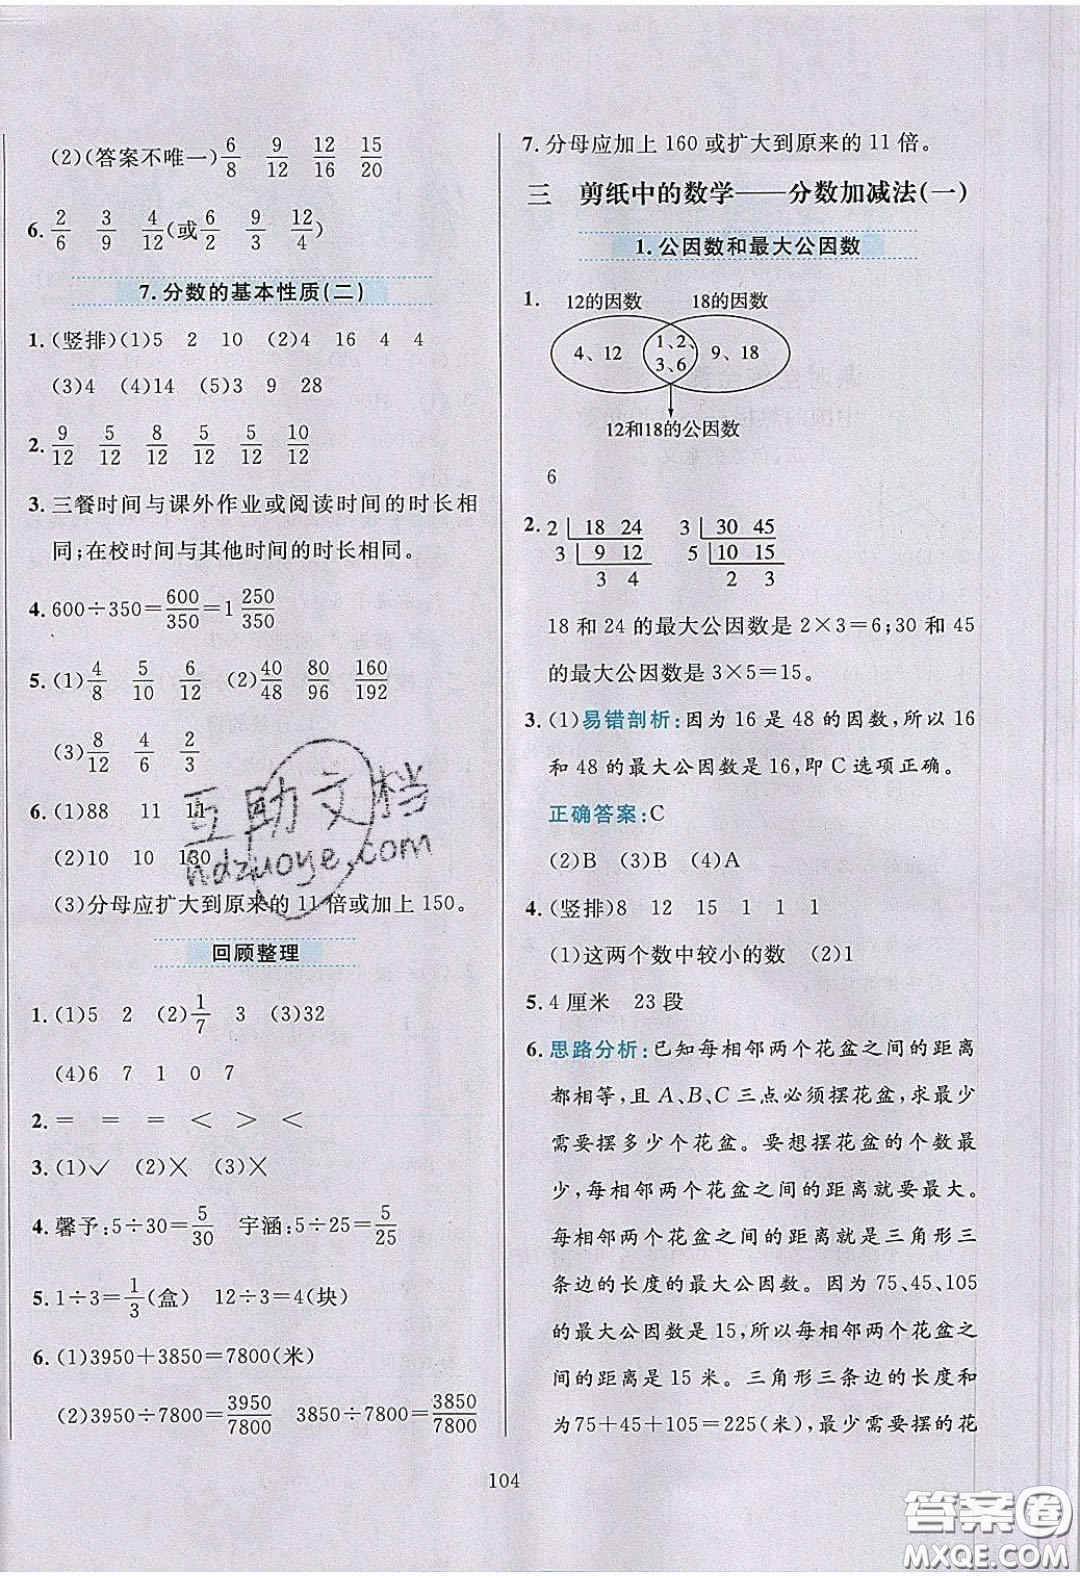 (2)(答案不唯一) 6/8 9/12 12/16 15/20
6. 2/6 3/9 4/12 (或 6/2 9/3 12/4)
7.分数的基本性质(二)
1. (竖排)(1)5 2 10 (2)4 16 4 4
(3)4 (4)14 (5)3 9 28
2. 9/12 5/12 8/12 5/12 5/12 10/12
3. 三餐时间与课外作业或阅读时间的时长相
同;在校时间与其他时间的时长相同。
4. 600÷350=600/350=1 250/350
5. (1) 4/8 5/10 6/12 (2) 40/48 80/96 160/192
(3) 8/12 4/6 2/3
6. (1)88 11 11
(2)10 10 130
(3)分母应扩大到原来的11倍或加上150。
回顾整理
1. (1)5 2 (2) 1/7 3 (3)32
(4)6 7 1 0 7
2. = = = < > <
3. (1)✓ (2)× (3)×
4. 馨予:5÷30=5/30 宇涵:5÷25=5/25
5. 1÷3=1/3(盒) 12÷3=4(块)
6. (1)3950+3850=7800(米)
(2)3950÷7800=3950/7800 3850÷7800=3850/7800
7. 分母应加上160或扩大到原来的11倍。
三 剪纸中的数学——分数加减法(一)
1.公因数和最大公因数
1. 12的因数 18的因数
4、12 1、2、 9、18
3、6
12和18的公因数
6
2. 2 18 24 3 30 45
3 9 12 5 10 15
3 4 2 3
18和24的最大公因数是2×3=6;30和45
的最大公因数是3×5=15。
3. (1)易错剖析:因为16是48的因数,所以16
和48的最大公因数是16,即C选项正确。
正确答案:C
(2)B (3)B (4)A
4. (竖排)8 12 15 1 1 1
(1)这两个数中较小的数 (2)1
5. 4厘米 23段
6. 思路分析:已知每相邻两个花盆之间的距离
都相等,且A、B、C三点必须摆花盆,求最少
需要摆多少个花盆。要想摆花盆的个数最
少,每相邻两个花盆之间的距离就要最大。
每相邻两个花盆之间的距离就是三角形三
条边的长度的最大公因数。因为75、45、105
的最大公因数是15,所以每相邻两个花盆之
间的距离是15米。三角形三条边的长度和
为75+45+105=225(米),最少需要摆的花
104
互助文档
hdzuoye.com
答案圈
MXQE.COM